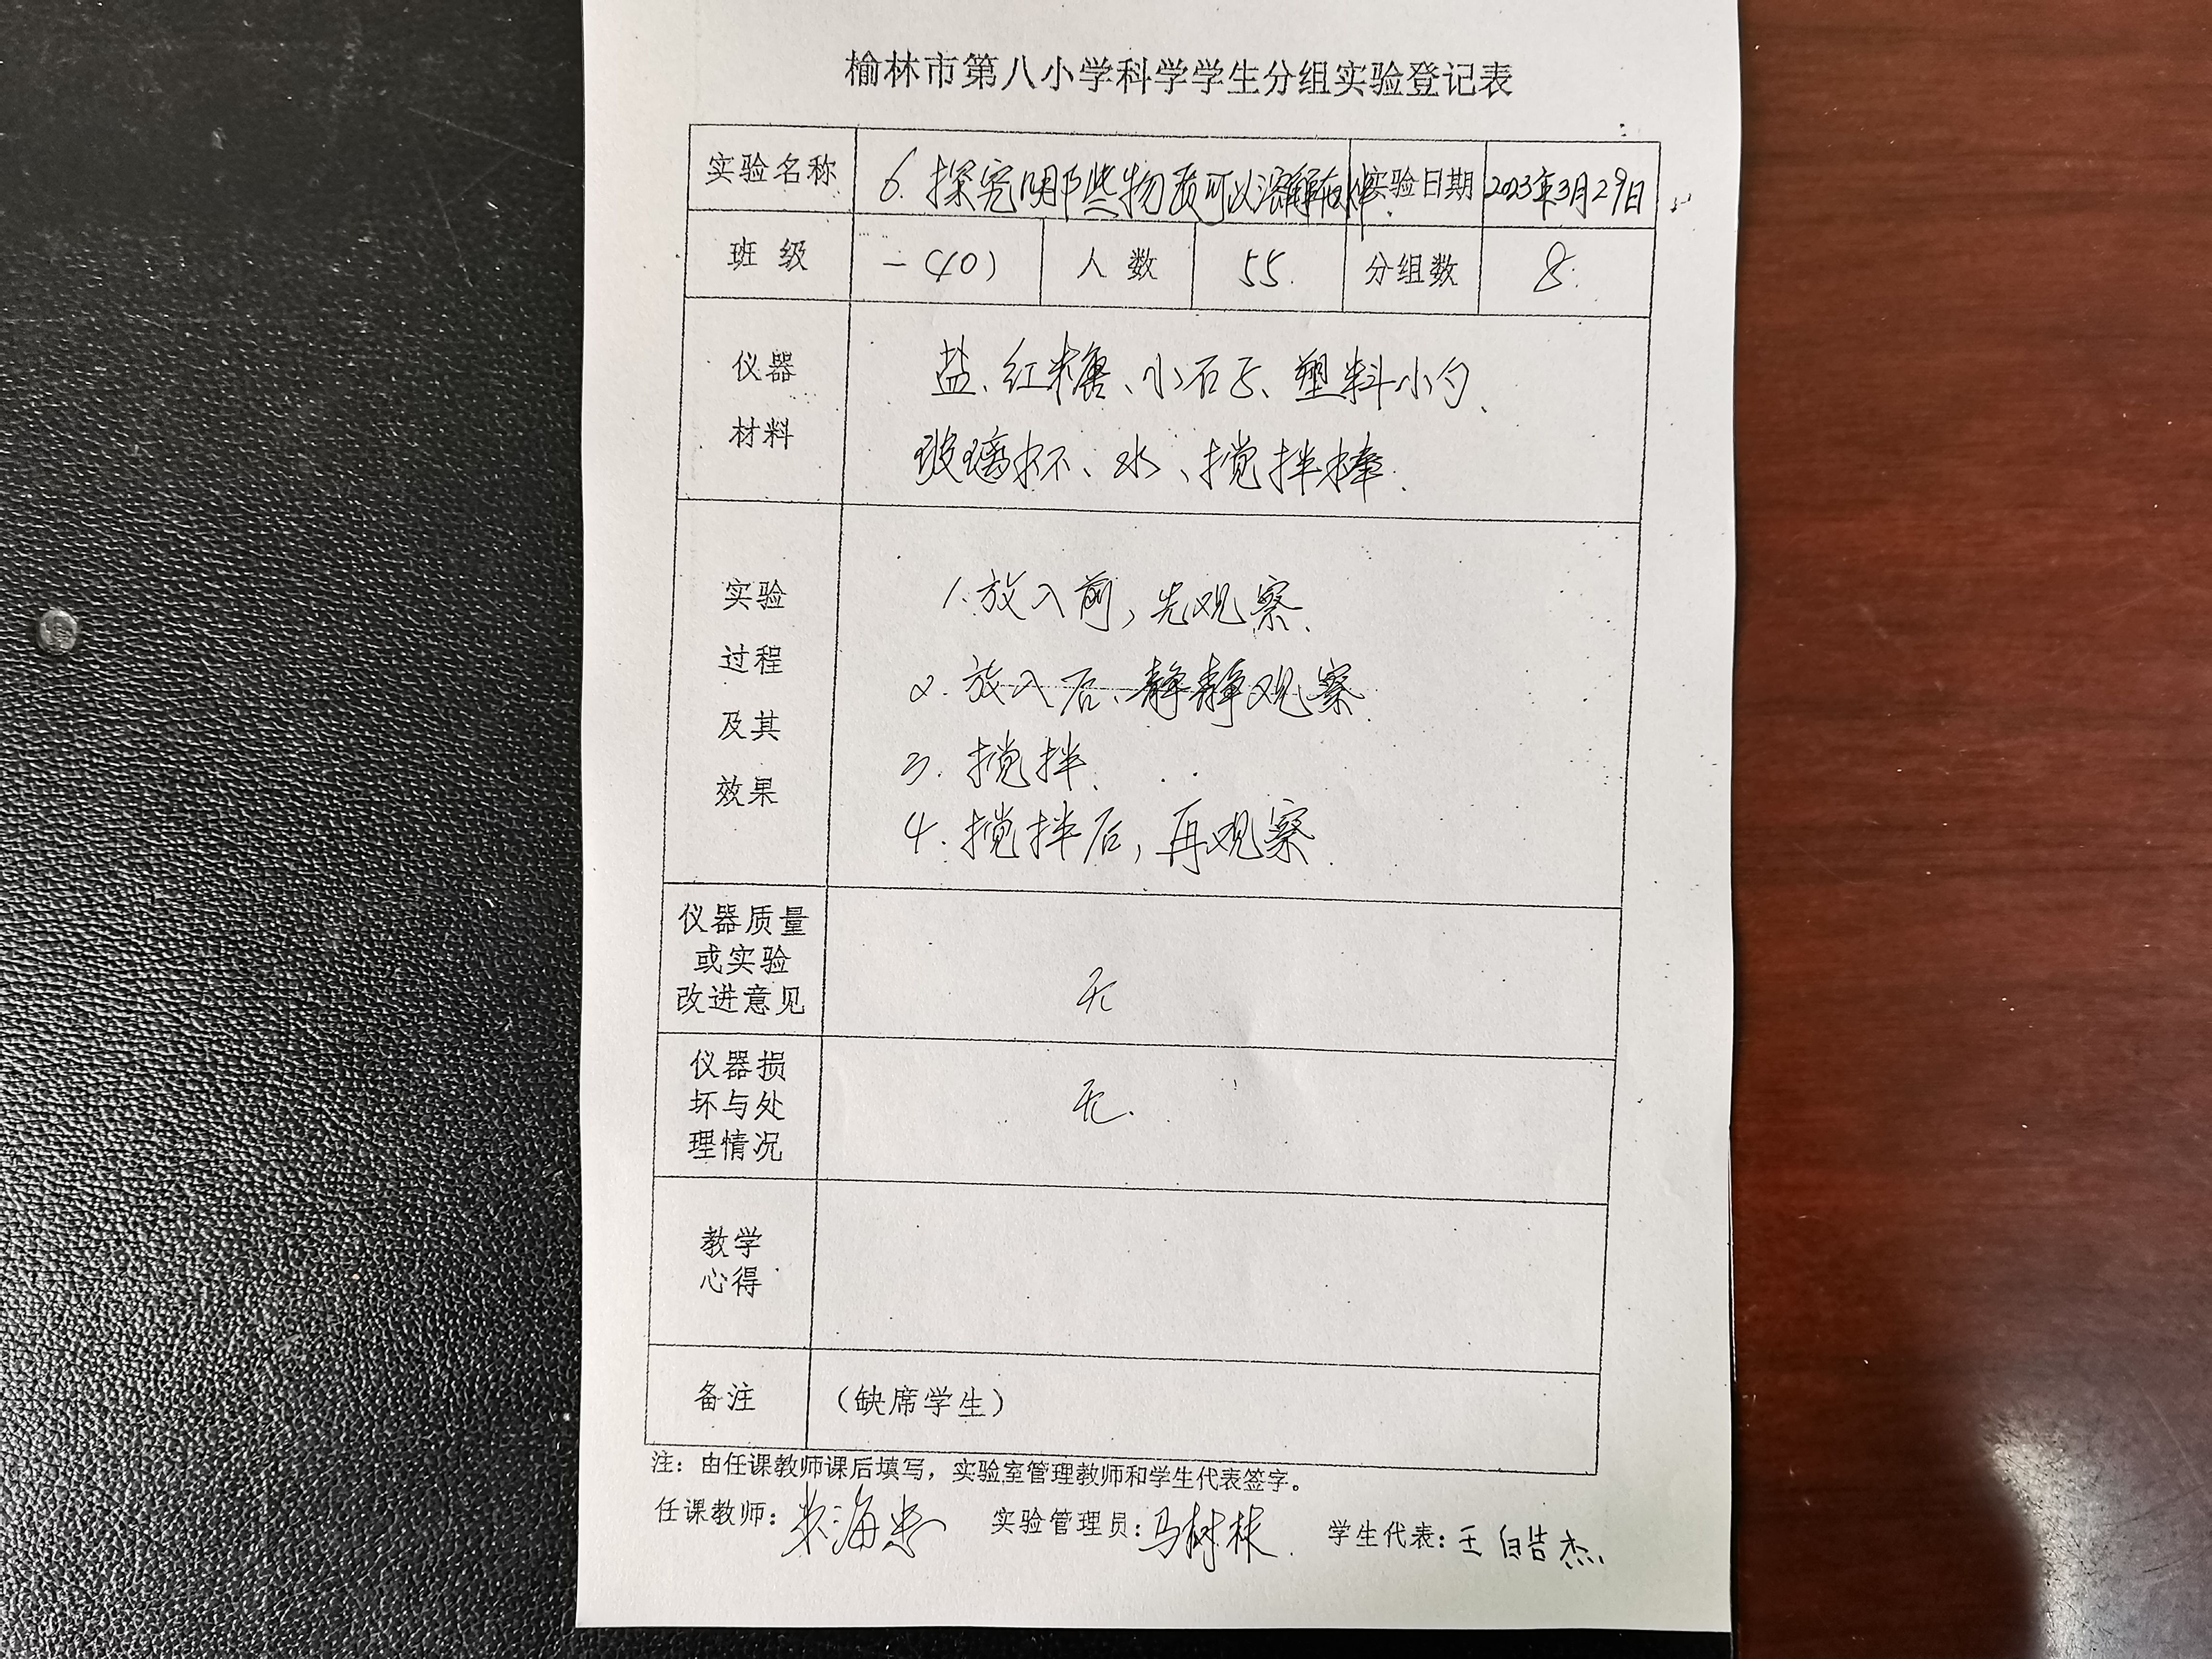 榆林市第八小学科学学生分组实验登记表
实验名称 6.探究哪些物质可以溶解在水中. 实验日期 2023年3月29日
班 级 一(10) 人 数 55. 分组数 8.
仪器 盐、红糖、小石子、塑料小勺、
材料 玻璃杯、水、搅拌棒.
实验 1.放入前,先观察.
过程 2.放入后、静静观察.
及其 3.搅拌.
效果 4.搅拌后,再观察.
仪器质量
或实验
改进意见 无
仪器损
坏与处 无.
理情况
教学
心得
备注 (缺席学生)
注:由任课教师课后填写,实验室管理教师和学生代表签字。
任课教师: 实验管理员:马树林. 学生代表:王皓杰